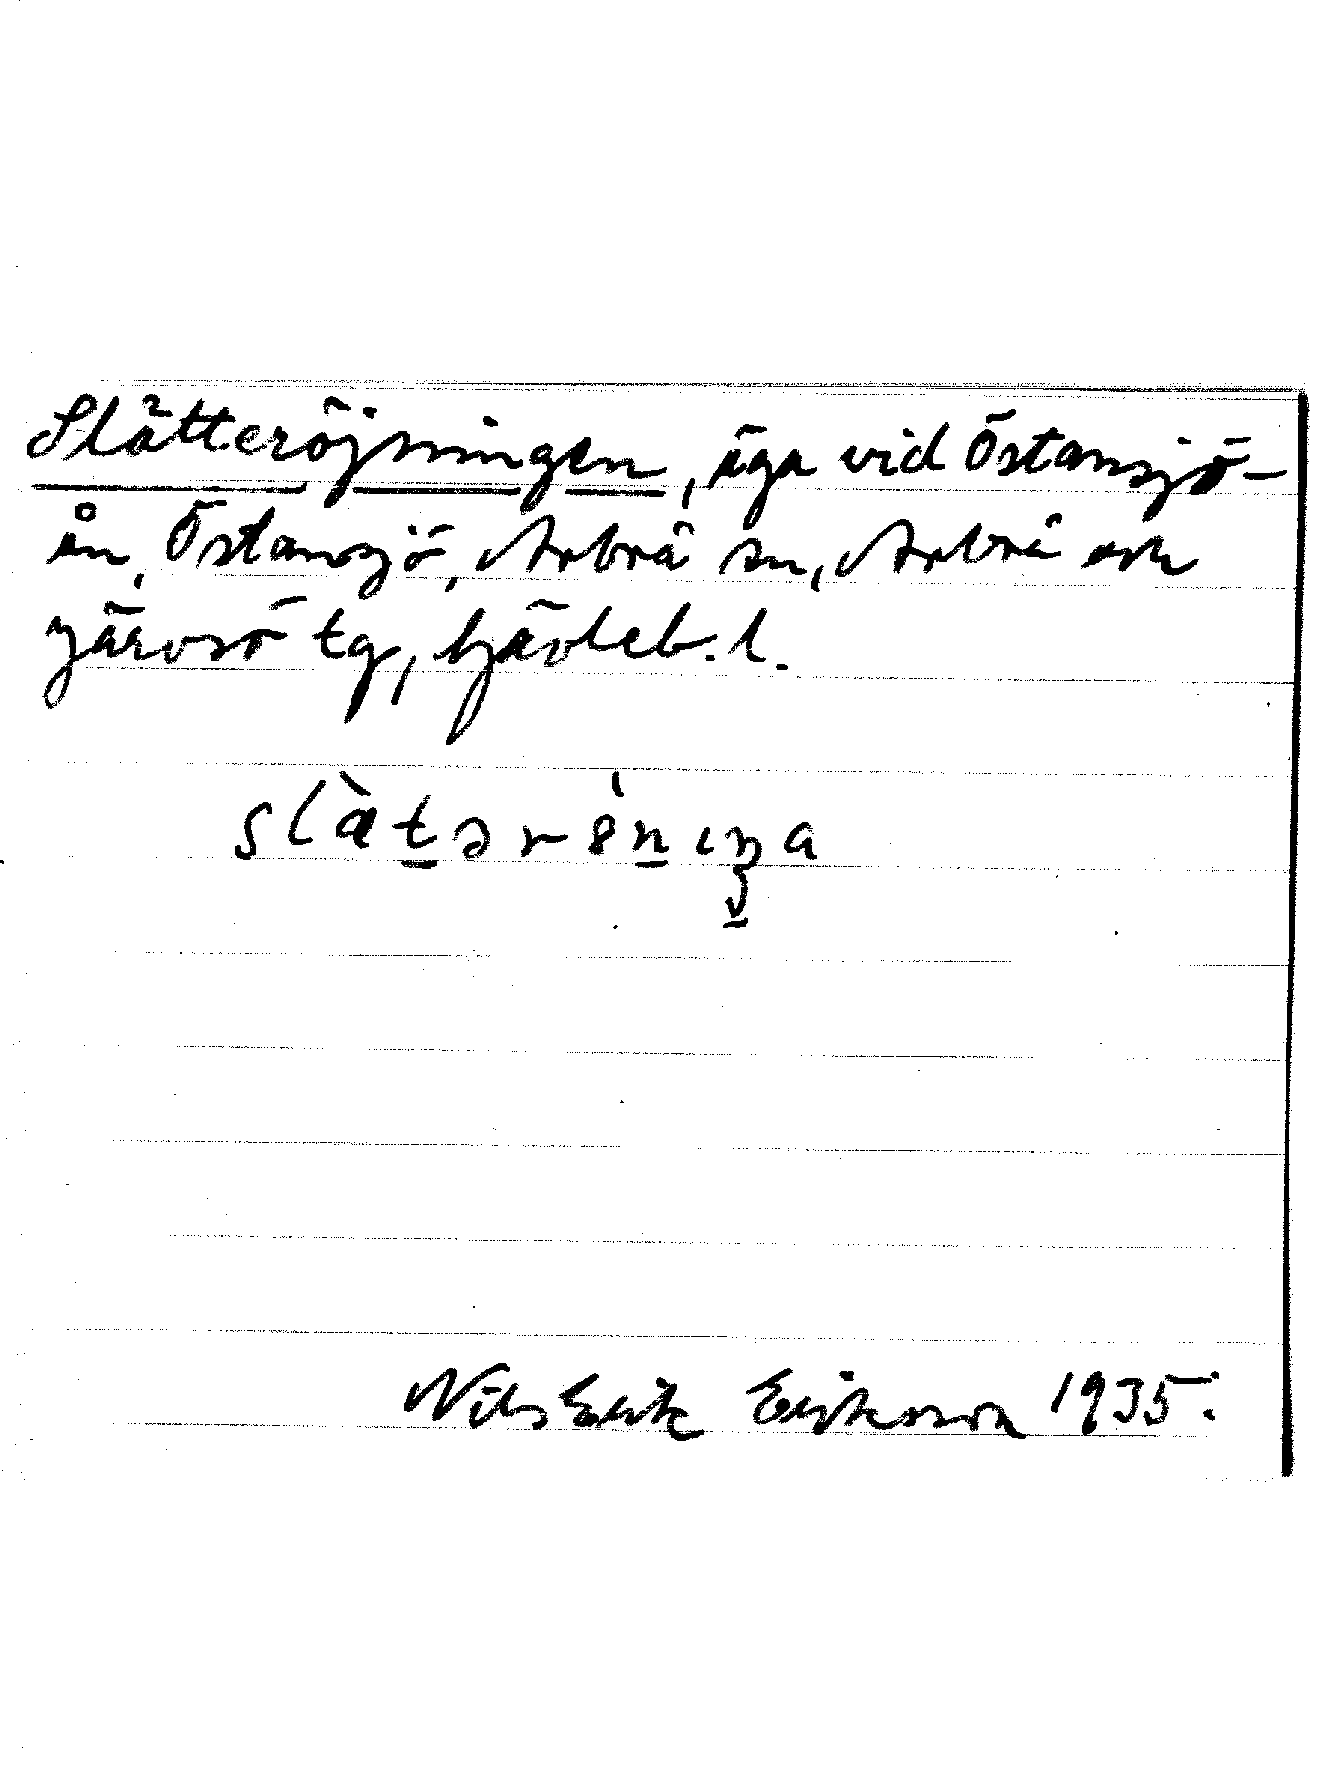 Slätteröjningen, äga vid Östansjö-
ån, Östansjö, Arbrå sn, Arbrå och
Järvsö tg, Gävleb. l.
slä̀tərénıŋa
Nils Erik Eriksson 1935.